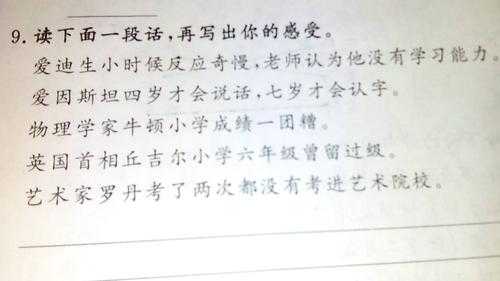 9. 读下面一段话，再写出你的感受。
爱迪生小时候反应奇慢，老师认为他没有学习能力。
爱因斯坦四岁才会说话，七岁才会认字。
物理学家牛顿小学成绩一团糟。
英国首相丘吉尔小学六年级曾留过级。
艺术家罗丹考了两次都没有考进艺术院校。